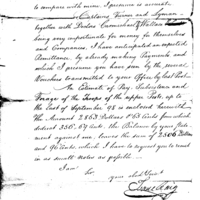 to compare with mine, I presume is correct.
Captains Vance and Lyman
together with Doctor Carmichael &
being very importunate for money for themselves
and Companies, I have anticipated an expected
Remittance, by already making Payments and
which I presume you have seen by the several
Vouchers transmitted to your Office by last Post
An Estimate of Pay Subsistence and
Forage of the Troops of the upper Posts, up to
the last of September 98 is enclosed herewith
The Amount 2863 Dollars & 63 Cents from which
deduct 356.67 Cents, the Balance by your State
ment against me, leaves the sum of 2506 Dollars
and 96 Cents which I have to request you to remit
in as small notes as possible
I am
your obed Servt